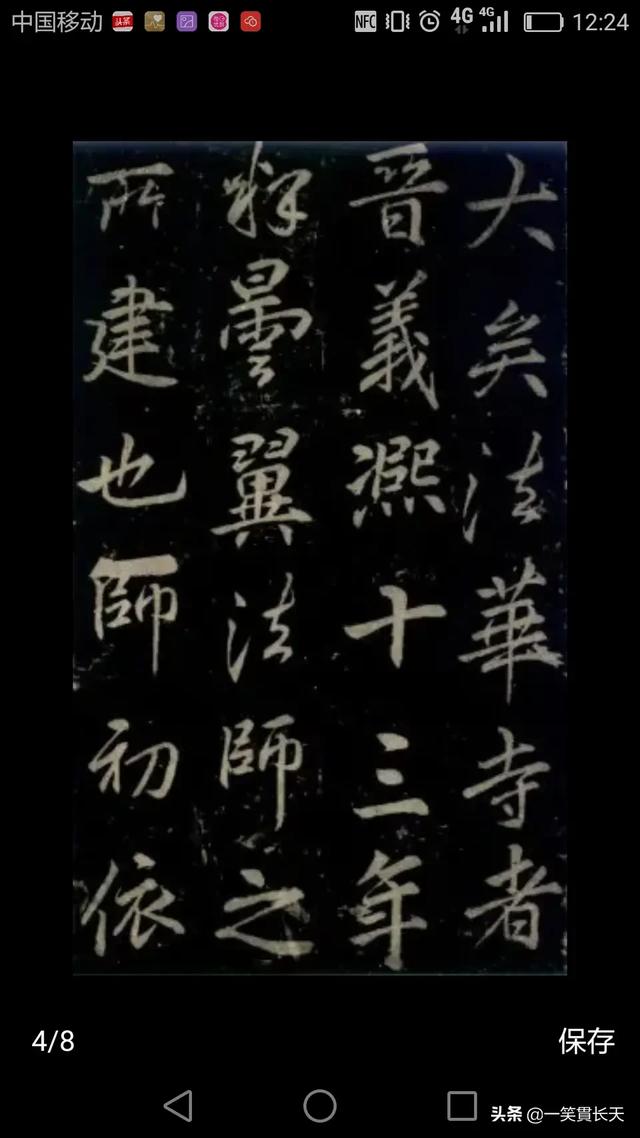 中国移动 头条 NFC 4G 4G 12:24
大矣法華寺者
晉義熈十三年
釋曇翼法師之
所建也師初依
4/8 保存
头条 @一笑貫长天